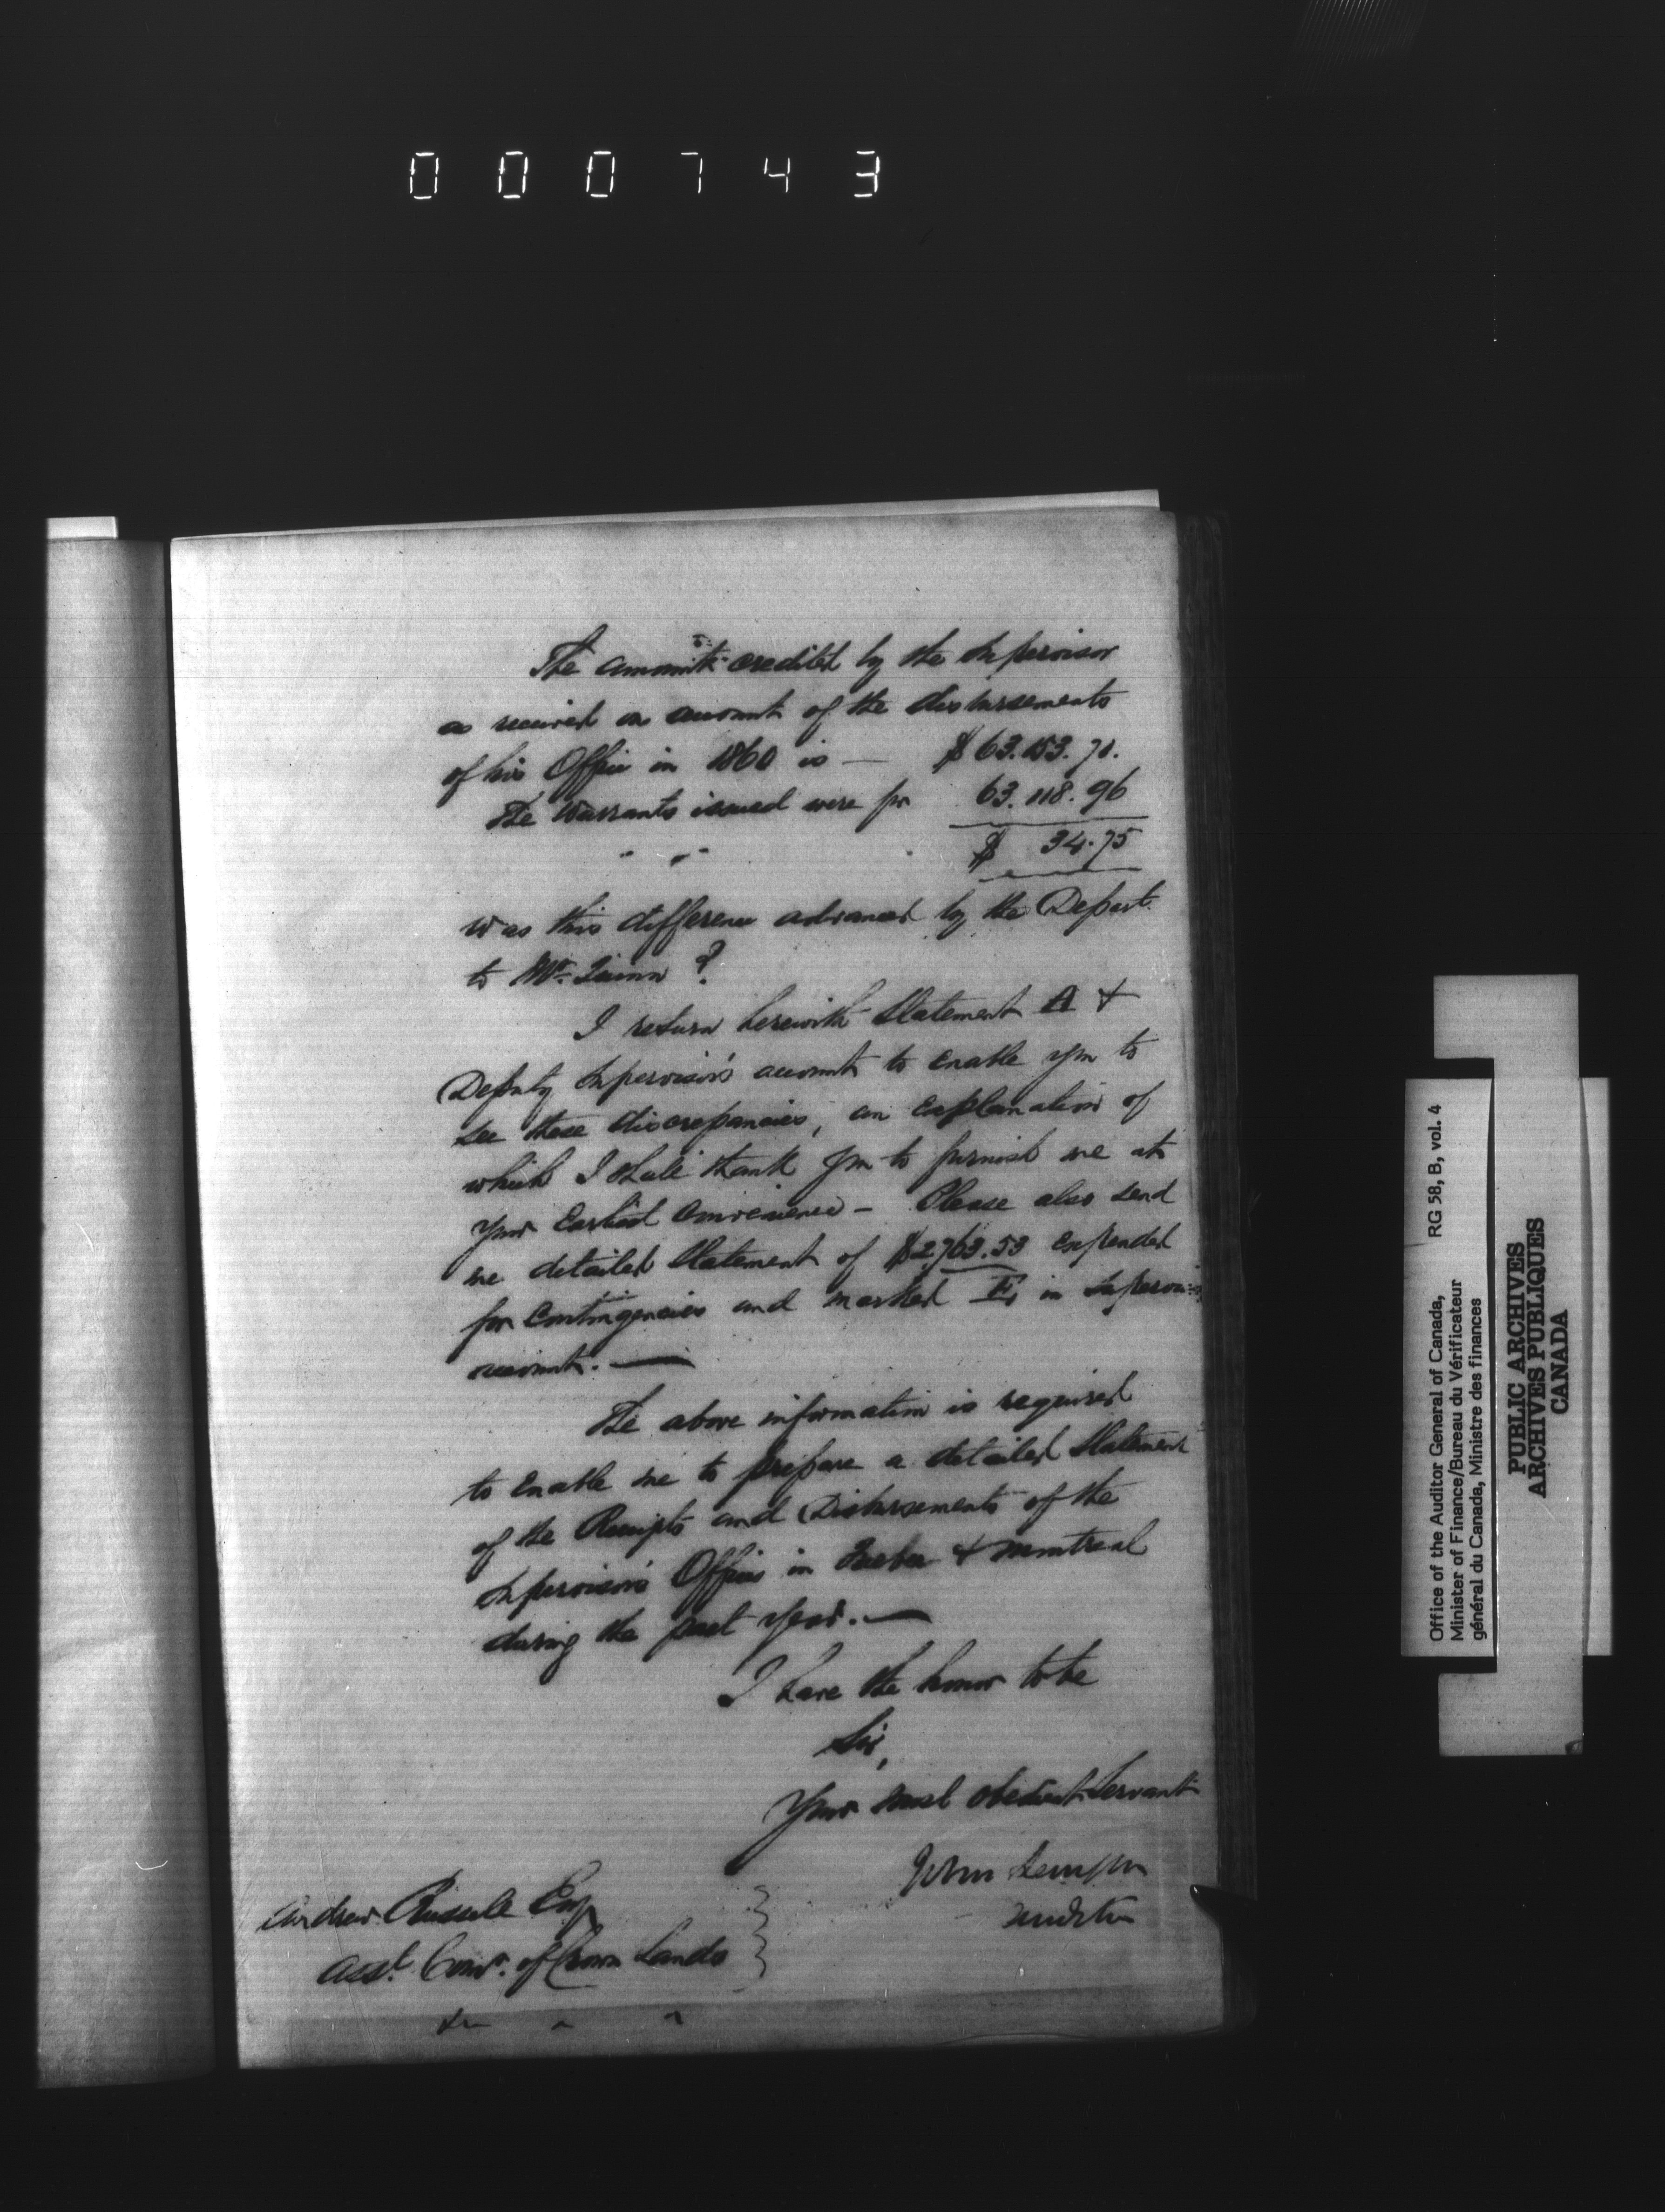 000743
The amount credited by the Supervisor
as received on account of the disbursements
of his Office in 1860 is — $63.153.71.
The Warrants issued were for 63.118.96
" " $ 34.75
was this difference advanced by the Depart.
to Mr. Quinn ?
I return herewith Statement A &
Deputy Supervisor's account to enable you to
see these discrepancies, an explanation of
which I shall thank you to furnish me at
your earliest convenience – Please also send
me detailed Statement of $2,763.53 expended
for Contingencies and marked E, in Supervisor's
account. —
The above information is required
to enable me to prepare a detailed Statement
of the Receipts and Disbursements of the
Supervisor's Offices in Quebec & Montreal
during the past year. —
I have the honor to be
Sir,
Your most obedient Servant
John Langton
Auditor
Andrew Russell Esq
Asst. Comr. of Crown Lands
&c " "
Office of the Auditor General of Canada,
Minister of Finance/Bureau du Vérificateur
général du Canada, Ministre des finances
RG 58, B, vol. 4
PUBLIC ARCHIVES
ARCHIVES PUBLIQUES
CANADA